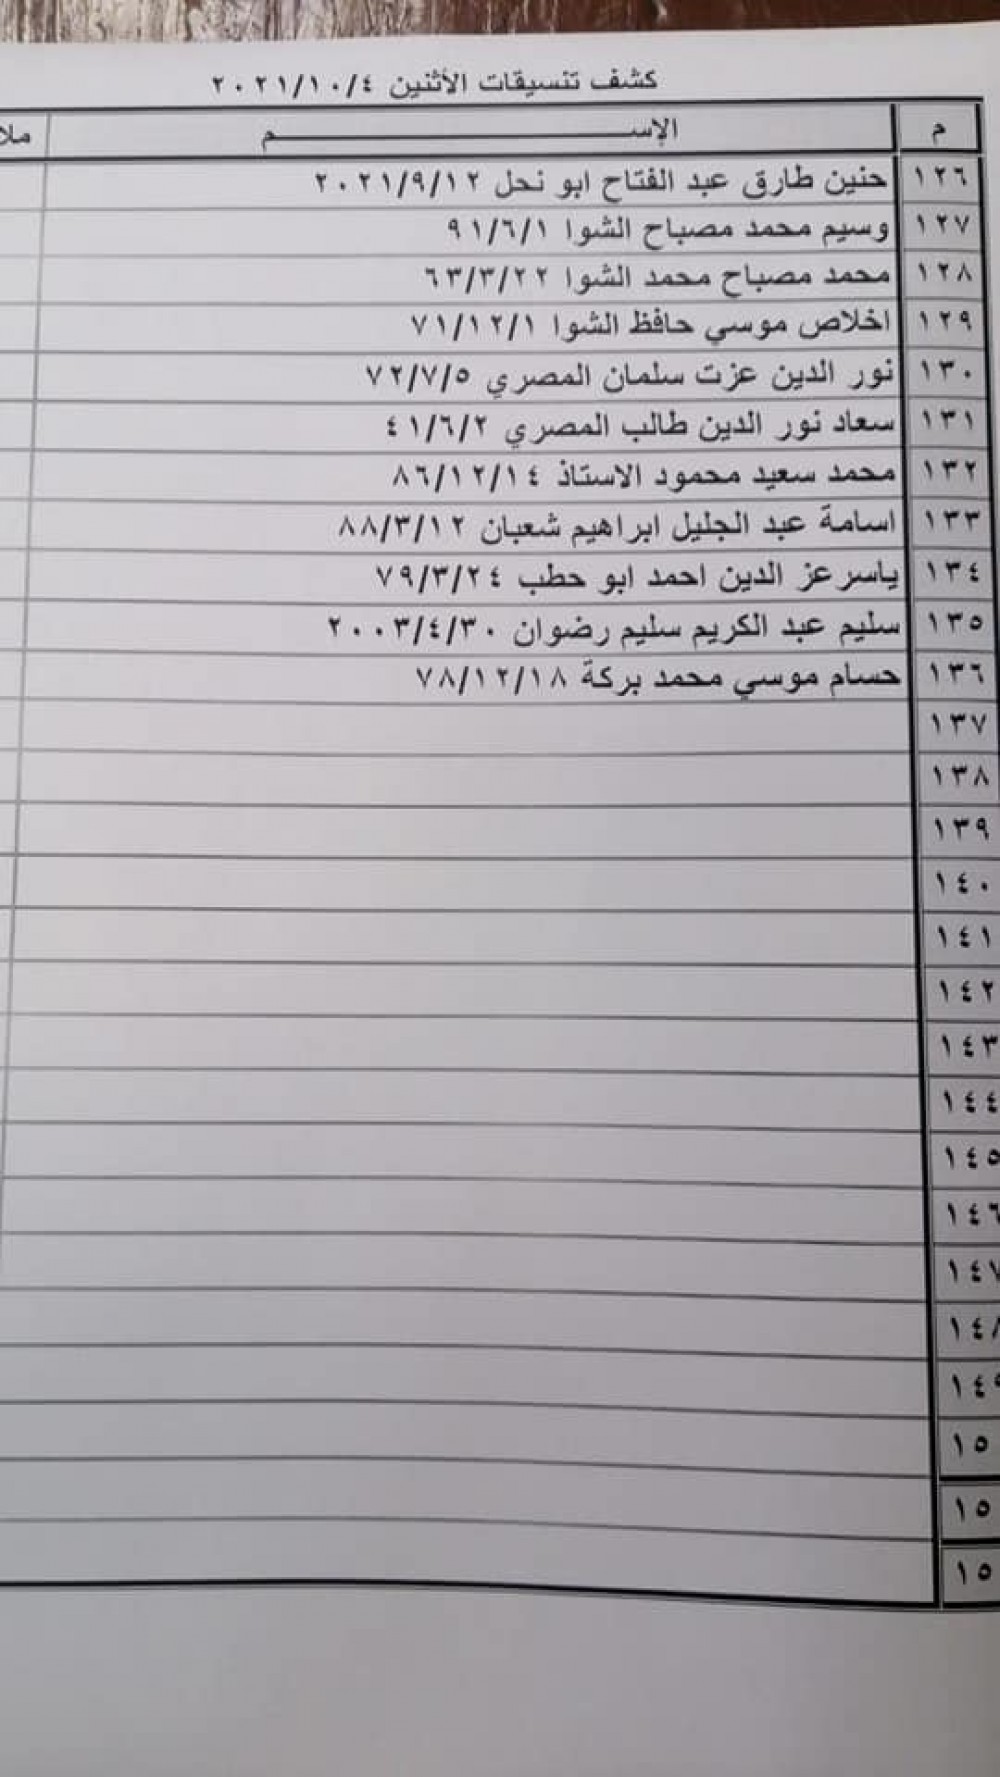 كشف تنسيقات الأثنين ٢٠٢١/١٠/٤
م الإســـــــــــــــم
١٢٦ حنين طارق عبد الفتاح ابو نحل ٢٠٢١/٩/١٢
١٢٧ وسيم محمد مصباح الشوا ٩١/٦/١
١٢٨ محمد مصباح محمد الشوا ٦٣/٣/٢٢
١٢٩ اخلاص موسي حافظ الشوا ٧١/١٢/١
١٣٠ نور الدين عزت سلمان المصري ٧٢/٧/٥
١٣١ سعاد نور الدين طالب المصري ٤١/٦/٢
١٣٢ محمد سعيد محمود الاستاذ ٨٦/١٢/١٤
١٣٣ اسامة عبد الجليل ابراهيم شعبان ٨٨/٣/١٢
١٣٤ ياسر عز الدين احمد ابو حطب ٧٩/٣/٢٤
١٣٥ سليم عبد الكريم سليم رضوان ٢٠٠٣/٤/٣٠
١٣٦ حسام موسي محمد بركة ٧٨/١٢/١٨
١٣٧
١٣٨
١٣٩
١٤٠
١٤١
١٤٢
١٤٣
١٤٤
١٤٥
١٤٦
١٤٧
١٤٨
١٤٩
١٥
١٥
١٥